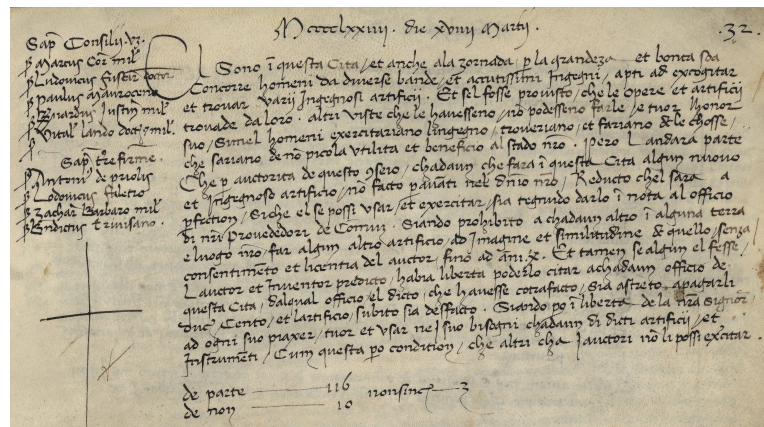 Mcccclxxiiii. die xviiij Martij.
.32.
Sap. Consilij. vz.
p Marcus Cor. mil
p Ludovicus Fuscar. doctor
p Paulus Maurocene
p Bernardin. Justin. mil
p Vital. lando doct. et mil.
p
Sap. Terrefirme.
p Antoni. de priolis
p Lodovicus faletro
p Zachar. Barbaro mil
p Bndictus trivisano.
El Sono ī questa Cita / et anche ala zornada / p la grandeza et bonta sua
Concorre homeni da diverse bande / et accutissimi Ingegni / apti ad excogitar
et trovar varij Ingegnosi artificij. Et sel fosse provisto / che le opere et artificij
trovade da loro. altri viste che le havesseno / nō podesseno farle / e tuor Lhonor
suo / Simel homeni exercitariano lingegno / troveriano / et fariano de le chosse /
che sariano de nō picola utilita et beneficio al stado nrō. Pero Landara parte
che p auctorita de questo 9seio / chadaun che fara ī questa Cita algun nuovo
et Ingegnoso artificio / nō facto pavāti nel dnīo nrō / Reducto chel sara a
pfection / Siche el se possi usar / et exercitar / sia tegnudo darlo ī nota al officio
di nrī Provededori de Comun. Siando prohibito a chadaun altro ī alguna terra
e luogo nrō / far algun altro artificio / ad Imagine et similitudine de quello / senza
consentimēto et licentia del auctor / fino ad anī. X. Et tamen se algun el fesse /
Lauctor et Inventor predicto / habia liberta poderlo citar achadaun officio de
questa Cita / dalqual officio el dicto / che havesse cōtrafacto / sia astreto apagarli
Duc. Cento / et lartificio / subito sia desfacto. Siando pō ī liberta de la nrā Signor.
ad ogni suo piaxer / tuor et usar nei suo bisogni chadaun di dicti artificij / et
Instrumēti / Cum questa pō condition / che altri cha I auctori nō li possi exercitar.
de parte 116
de non 10
non sinc. 3